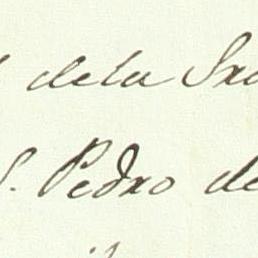 dela
S. Pedro de